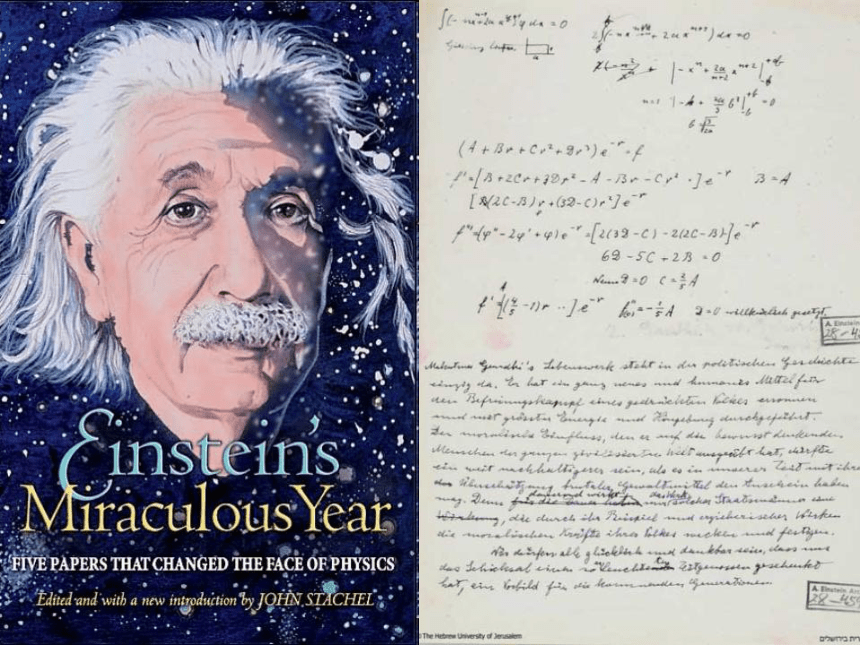 Einstein's
Miraculous Year
FIVE PAPERS THAT CHANGED THE FACE OF PHYSICS
Edited and with a new introduction by JOHN STACHEL
(A + Br + Cr² + Dr³) e^-r = f
f' = [B + 2Cr + 3Dr² - A - Br - Cr² ·] e^-r B = A
[(2C-B)r + (3D-C)r²] e^-r
f'' = (φ'' - 2φ' + φ) e^-r = [2(3D-C) - 2(2C-B)] e^-r
6D - 5C + 2B = 0
Wenn D = 0 C = 2/5 A
D = 0 willkürlich gesetzt.
A. Einstein
28-45
Mahatma Gandhi's Lebenswerk steht in der politischen Geschichte
einzig da. Er hat ein ganz neues und humanes Mittel für
den Befreiungskampf eines gedrückten Volkes ersonnen
und mit grösster Energie und Hingebung durchgeführt.
Der moralische Einfluss, den er auf die bewusst denkenden
Menschen der ganzen zivilisierten Welt ausgeübt hat, dürfte
ein weit nachhaltigerer sein, als es in unserer Zeit mit ihrer
Überschätzung brutaler Gewaltmittel den Anschein haben
mag. Denn dauernd wirkt nur das Werk solcher Staatsmänner
die durch ihr Beispiel und erzieherisches Wirken
die moralischen Kräfte ihres Volkes wecken und festigen.
Wir dürfen alle glücklich und dankbar sein, dass uns
das Schicksal einen so leuchtenden Zeitgenossen geschenkt
hat, ein Vorbild für die kommenden Generationen.
A. Einstein Arc
28-45
The Hebrew University of Jerusalem
רית בירושלים